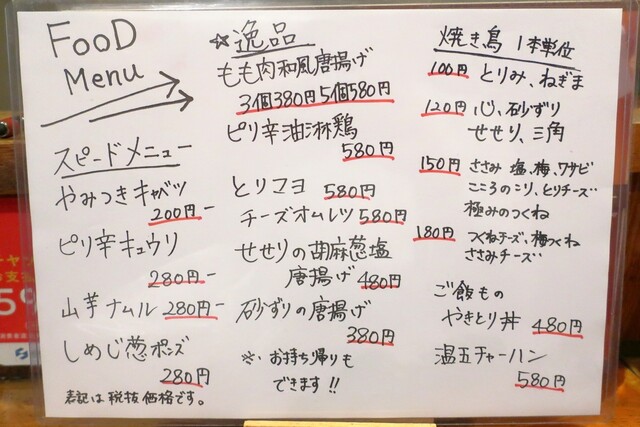 FooD
Menu
スピードメニュー
やみつきキャベツ
200円ー
ピリ辛キュウリ
280円ー
山芋ナムル 280円ー
しめじ葱ポンズ
280円
表記は税抜価格です。
☆逸品
もも肉和風唐揚げ
3個380円 5個580円
ピリ辛油淋鶏
580円
とりマヨ 580円
チーズオムレツ 580円
せせりの胡麻葱塩
唐揚げ 480円
砂ずりの唐揚げ
380円
※お持ち帰りも
できます!!
焼き鳥 1本単位
100円 とりみ、ねぎま
120円 心、砂ずり
せせり、三角
150円 ささみ 塩、梅、ワサビ
こころのこり、とりチーズ
極みのつくね
180円 つくねチーズ、梅つくね
ささみチーズ
ご飯もの
やきとり丼 480円
温玉チャーハン
580円
5%